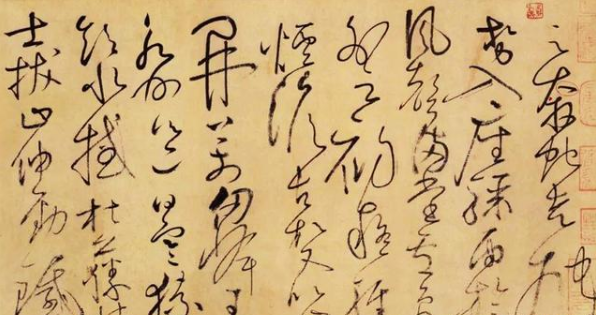 云奔蛇走虺
勢入座驟雨旋
風聲滿堂盧員
外云初疑輕
煙澹古松又似
開萬仞峰王
永州邕曰寒猿
飲水撼枯藤
士拔山伸勁鐵